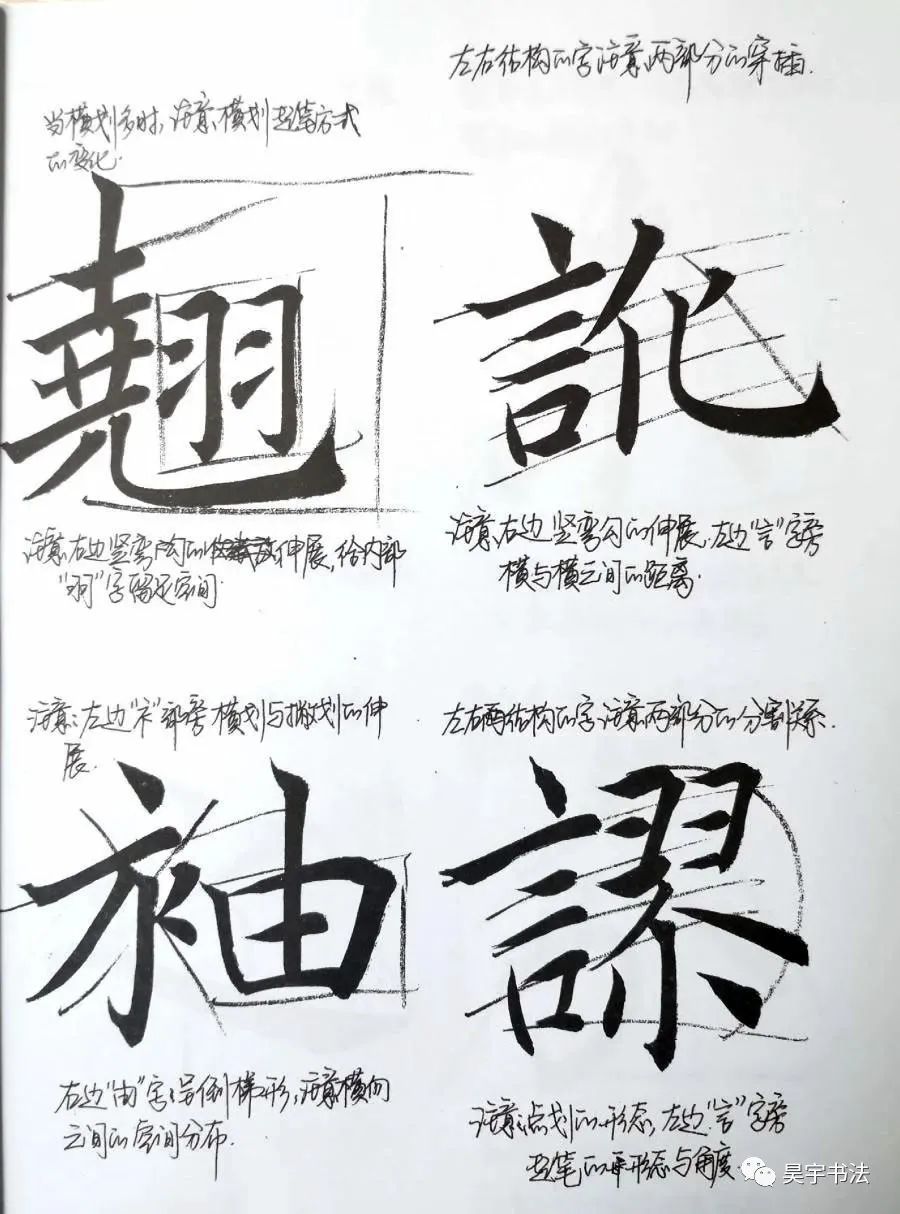 左右结构的字注意两部分的穿插.
当横划多时，注意横划起笔方式
的变化.
翹
訛
注意右边竖弯沟的伸展，给内部
“羽”字留足空间.
注意右边竖弯勾的伸展.左边“言”字旁
横与横之间的距离.
注意：左边“衤”部旁横划与撇划的伸
展.
左右结构的字注意两部分的分割关系.
袖
謬
右边“由”字呈倒梯形，注意横向
之间的空间分布.
注意点划的形态，左边“言”字旁
起笔的形态与角度.
昊宇书法